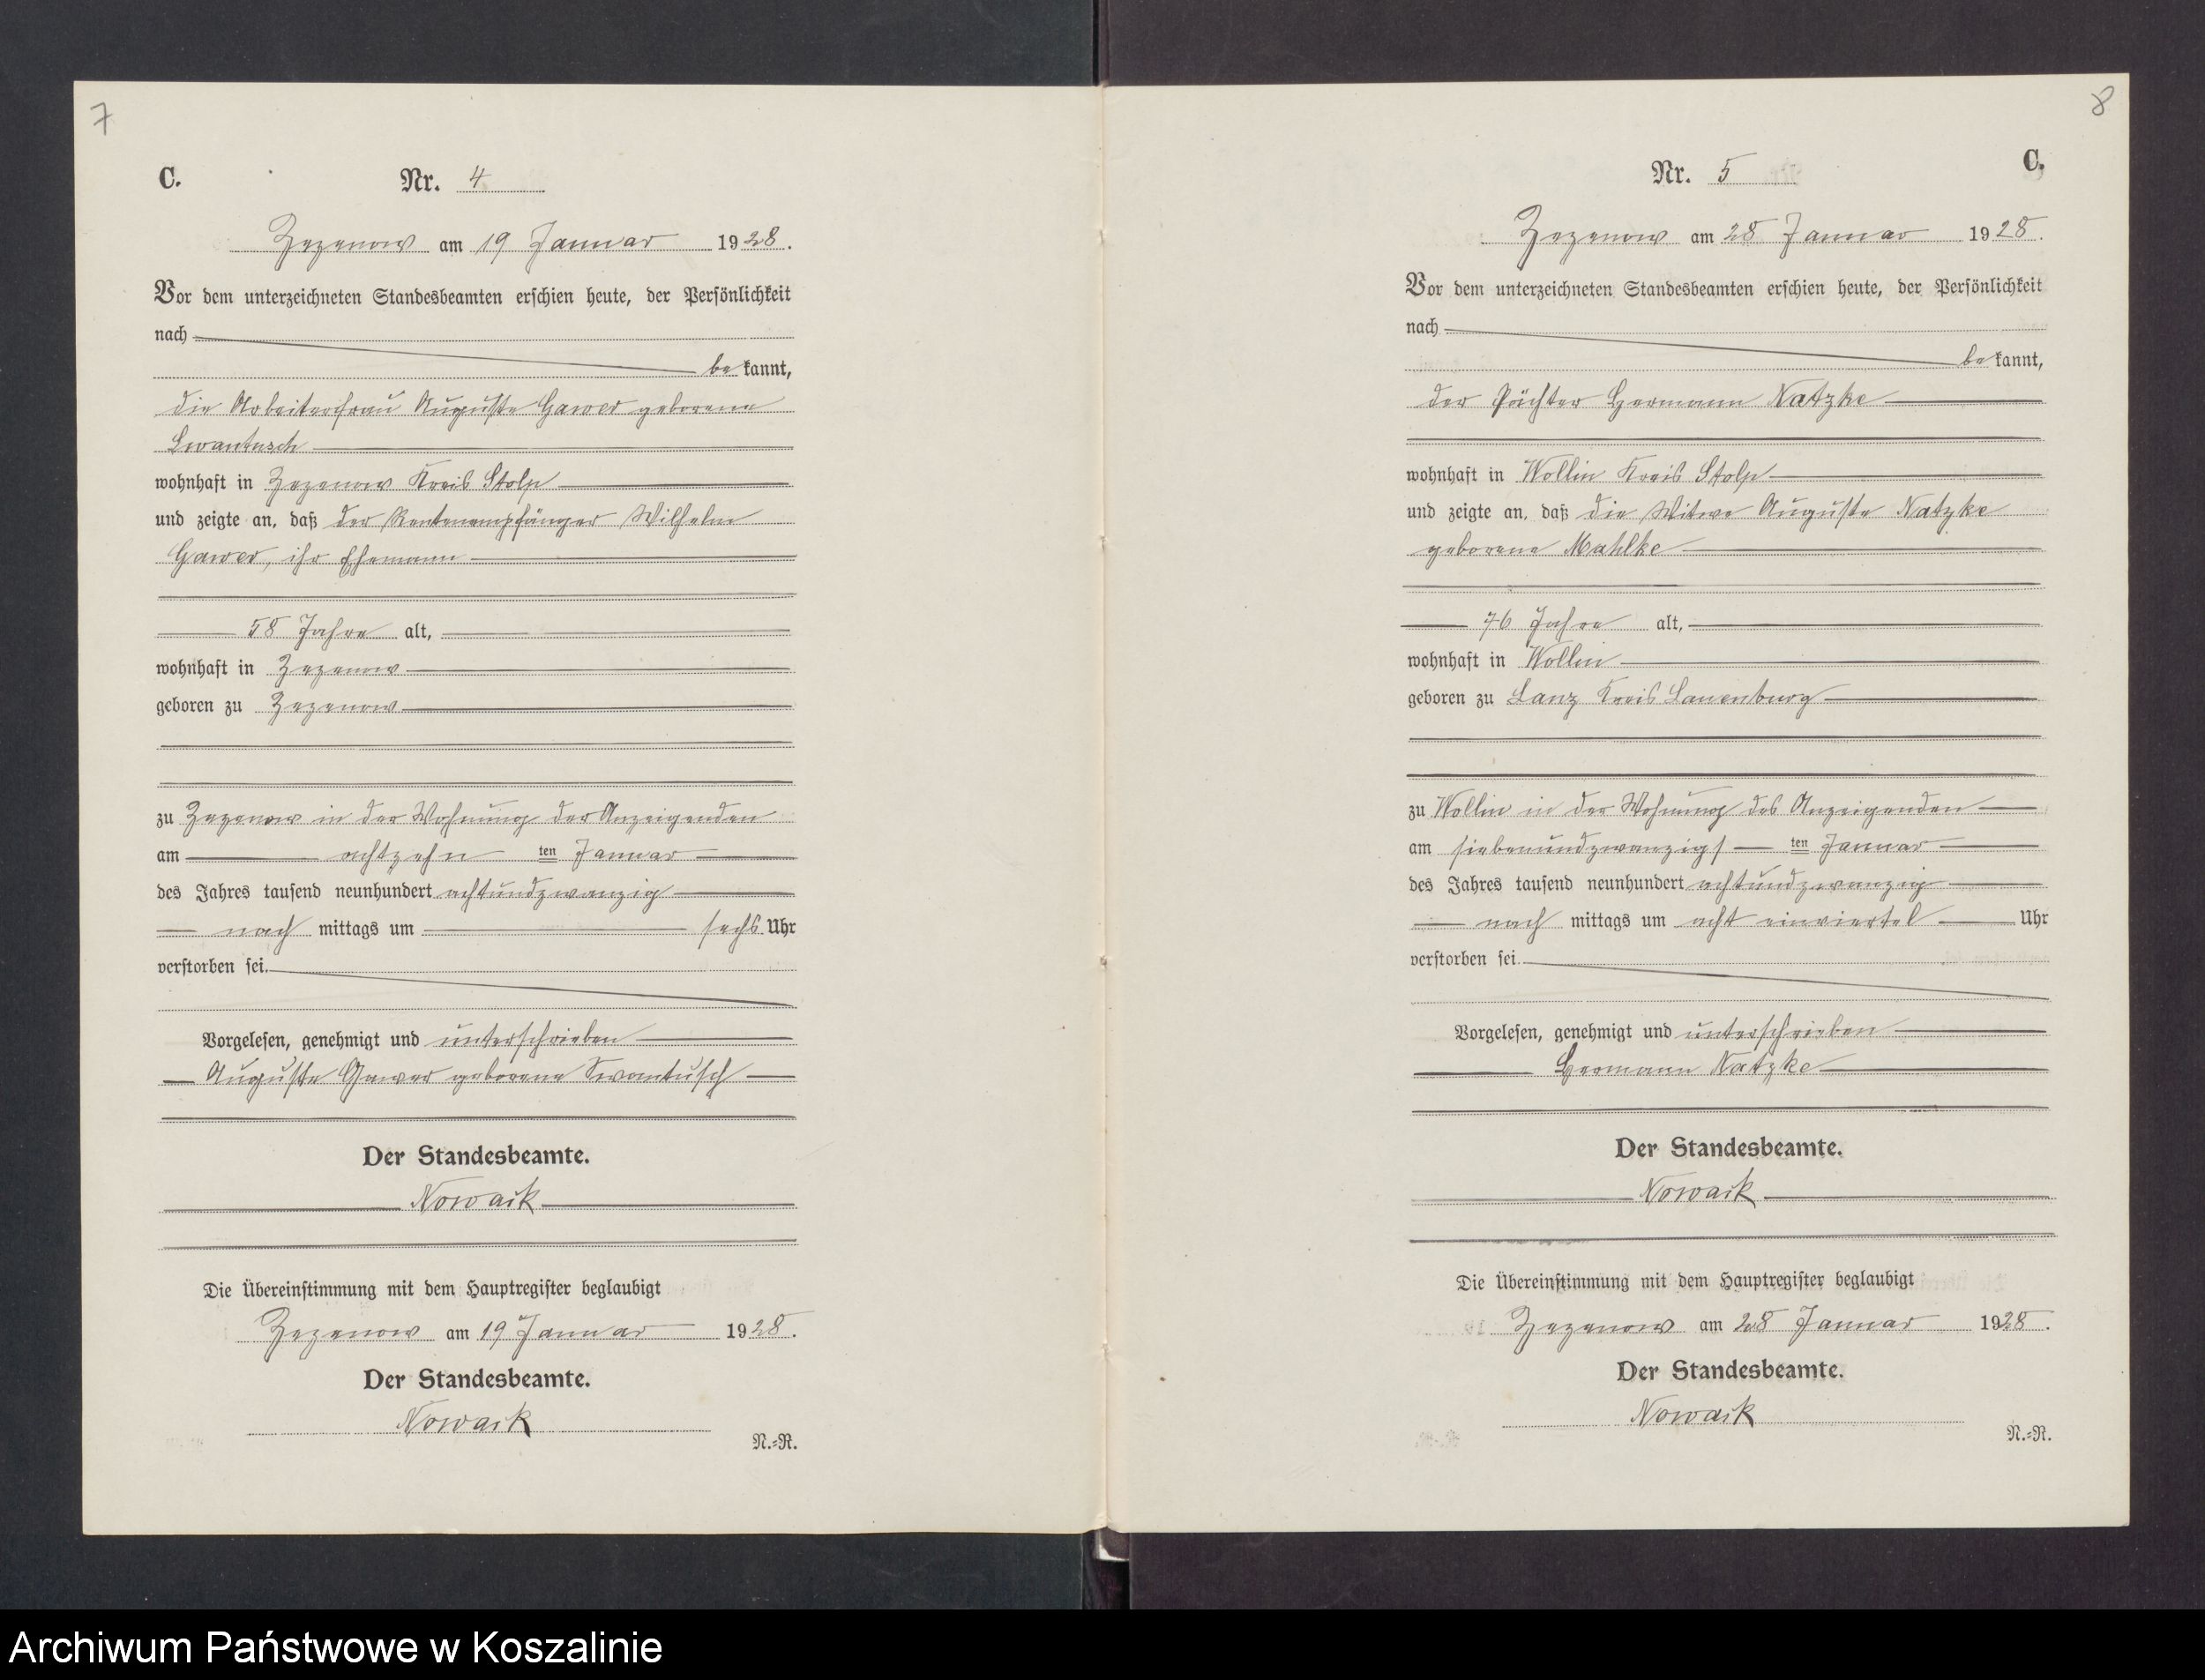 7
C.
Nr. 4
Zezenow am 19 Januar 1928.
Vor dem unterzeichneten Standesbeamten erschien heute, der Persönlichkeit
nach
bekannt,
die Arbeiterfrau Auguste Gawer geborene
Swantusch
wohnhaft in Zezenow Kreis Stolp
und zeigte an, daß der Rentenempfänger Wilhelm
Gawer, ihr Ehemann
58 Jahre alt,
wohnhaft in Zezenow
geboren zu Zezenow
zu Zezenow in der Wohnung der Anzeigenden
am achtzehn ten Januar
des Jahres tausend neunhundert achtundzwanzig
nach mittags um sechs Uhr
verstorben sei.
Vorgelesen, genehmigt und unterschrieben
Auguste Gawer geborene Swantusch
Der Standesbeamte.
Nowack
Die Übereinstimmung mit dem Hauptregister beglaubigt
Zezenow am 19 Januar 1928.
Der Standesbeamte.
Nowack
N.=R.
8
C.
Nr. 5
Zezenow am 28 Januar 1928.
Vor dem unterzeichneten Standesbeamten erschien heute, der Persönlichkeit
nach
bekannt,
der Pächter Hermann Natzke
wohnhaft in Wollin Kreis Stolp
und zeigte an, daß die Witwe Auguste Natzke
geborene Mahlke
76 Jahre alt,
wohnhaft in Wollin
geboren zu Lanz Kreis Lauenburg
zu Wollin in der Wohnung des Anzeigenden
am siebenundzwanzigs ten Januar
des Jahres tausend neunhundert achtundzwanzig
nach mittags um acht einviertel Uhr
verstorben sei.
Vorgelesen, genehmigt und unterschrieben
Hermann Natzke
Der Standesbeamte.
Nowack
Die Übereinstimmung mit dem Hauptregister beglaubigt
Zezenow am 28 Januar 1928.
Der Standesbeamte.
Nowack
N.=R.
Archiwum Państwowe w Koszalinie